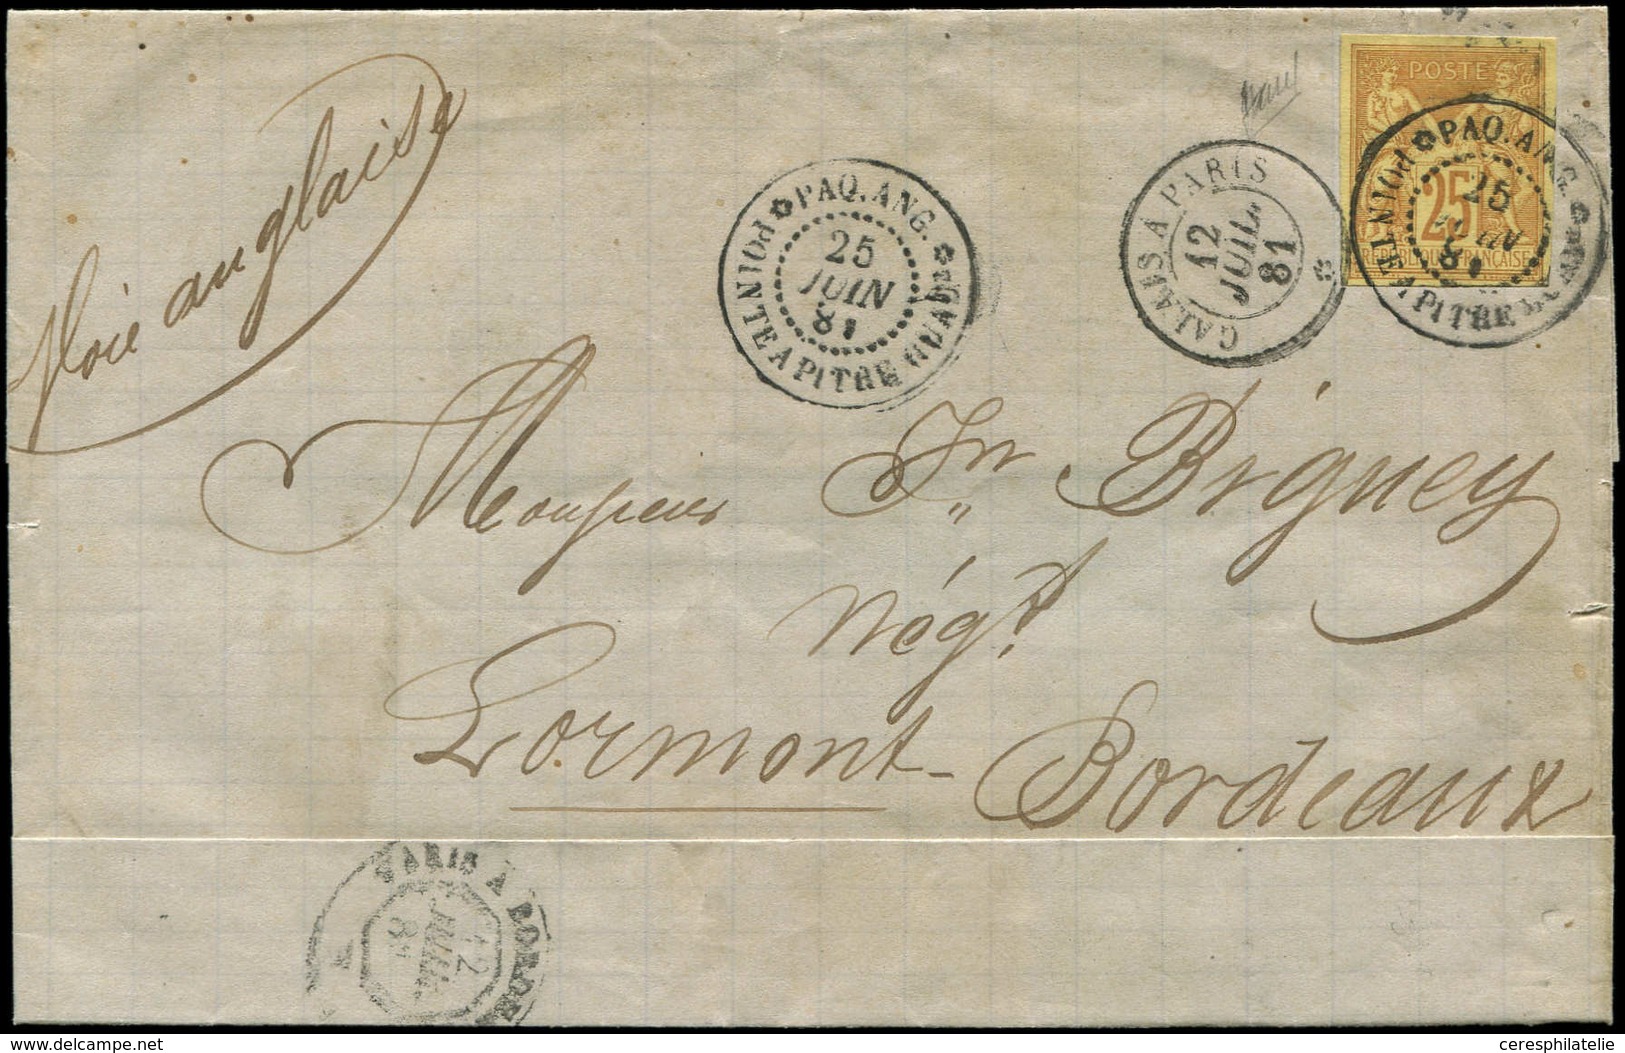 Voie anglaise
POSTE
25
REPUBLIQUE FRANCAISE
PAQ. ANG.
POINTE A PITRE GUAD
25
JUIN
81
CALAIS A PARIS
12
JUIL.
81
PAQ. ANG.
POINTE A PITRE GUAD
25
JUIN
81
Monsieur Jn Biguey
Négt.
Lormont - Bordeaux
PARIS A BORDE
12
JUIL
81
www.delcampe.net
ceresphilatelie